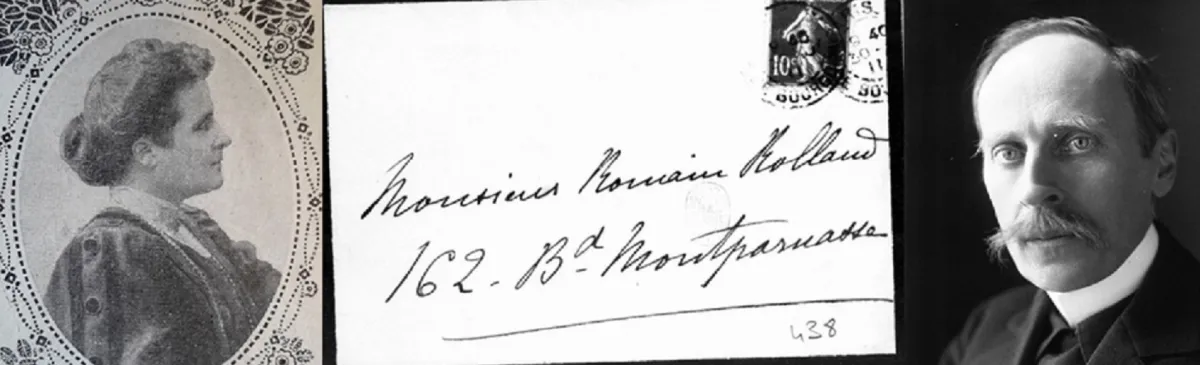 10
Monsieur Romain Rolland
162. Bd. Montparnasse
438